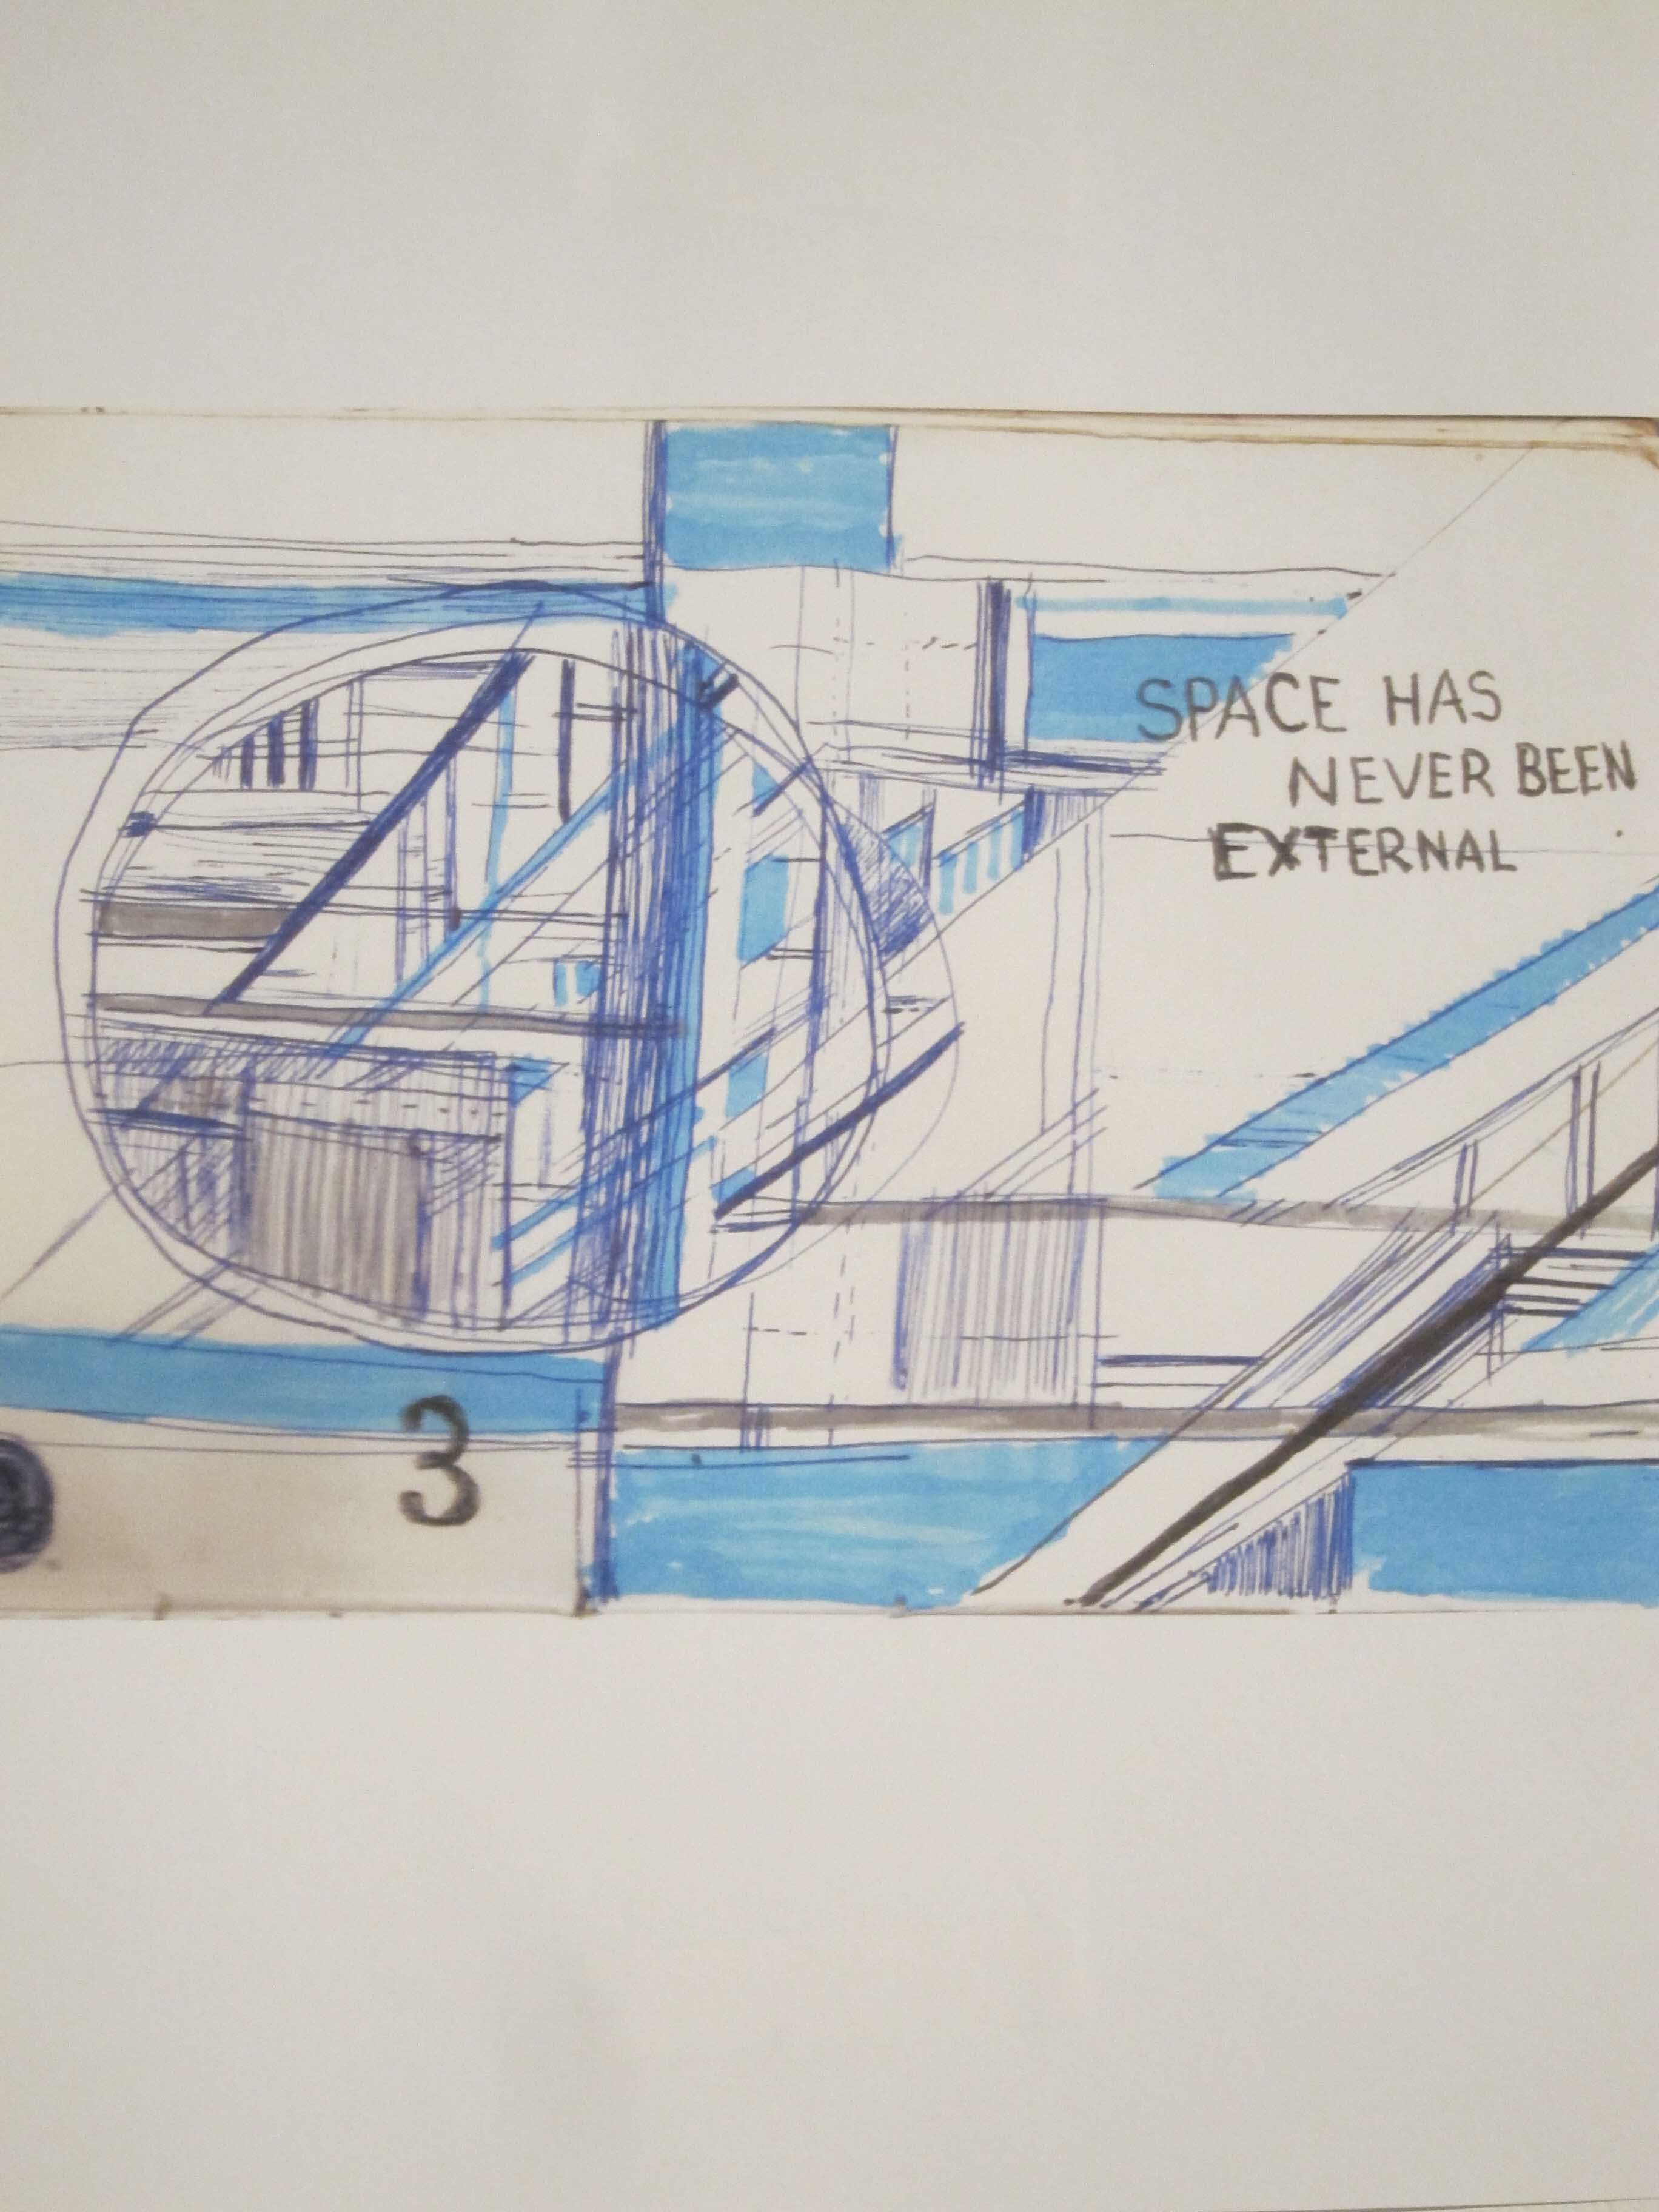 SPACE HAS
NEVER BEEN
EXTERNAL
3